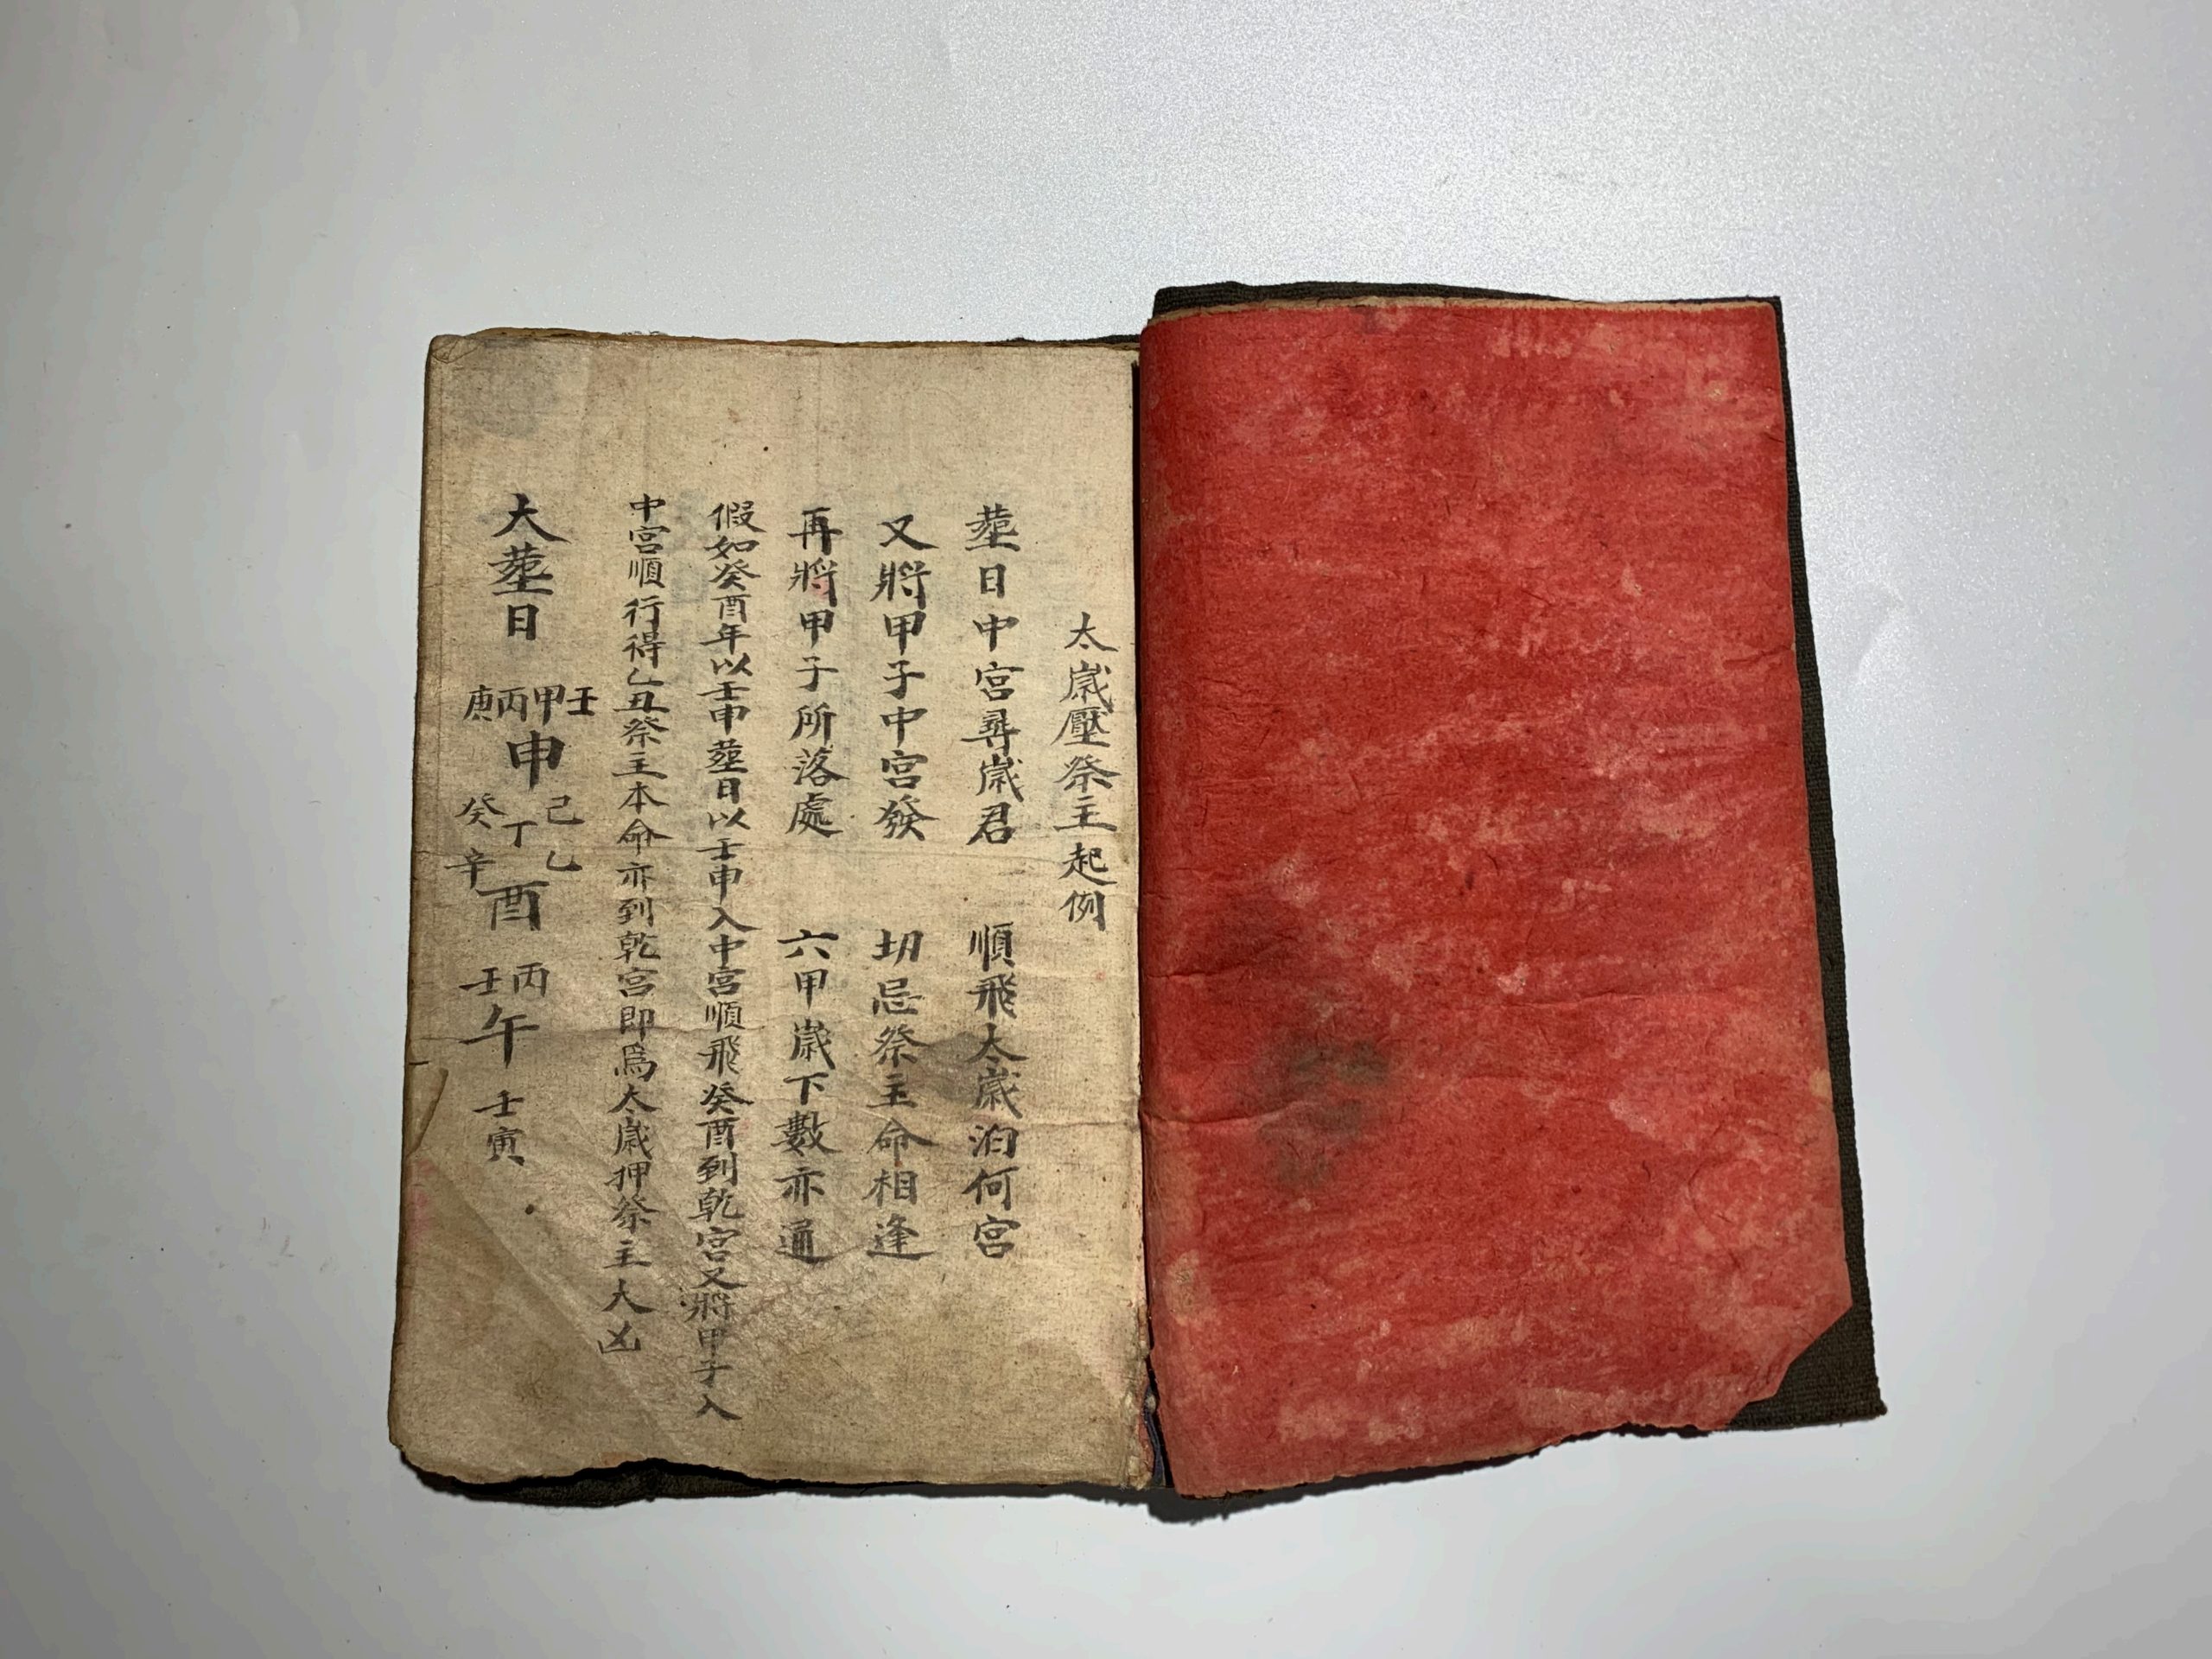 太歲壓祭主起例
塟日中宮尋歲君　順飛太歲泊何宮
又將甲子中宮發　切忌祭主命相逢
再將甲子所落處　六甲歲下數亦通
假如癸酉年以壬申塟日以壬申入中宮順飛癸酉到乾宮又將甲子入
中宮順行得乙丑祭主本命亦到乾宮即爲太歲押祭主大凶
大塟日　壬甲丙庚申　己乙丁癸辛酉　丙壬午　壬寅